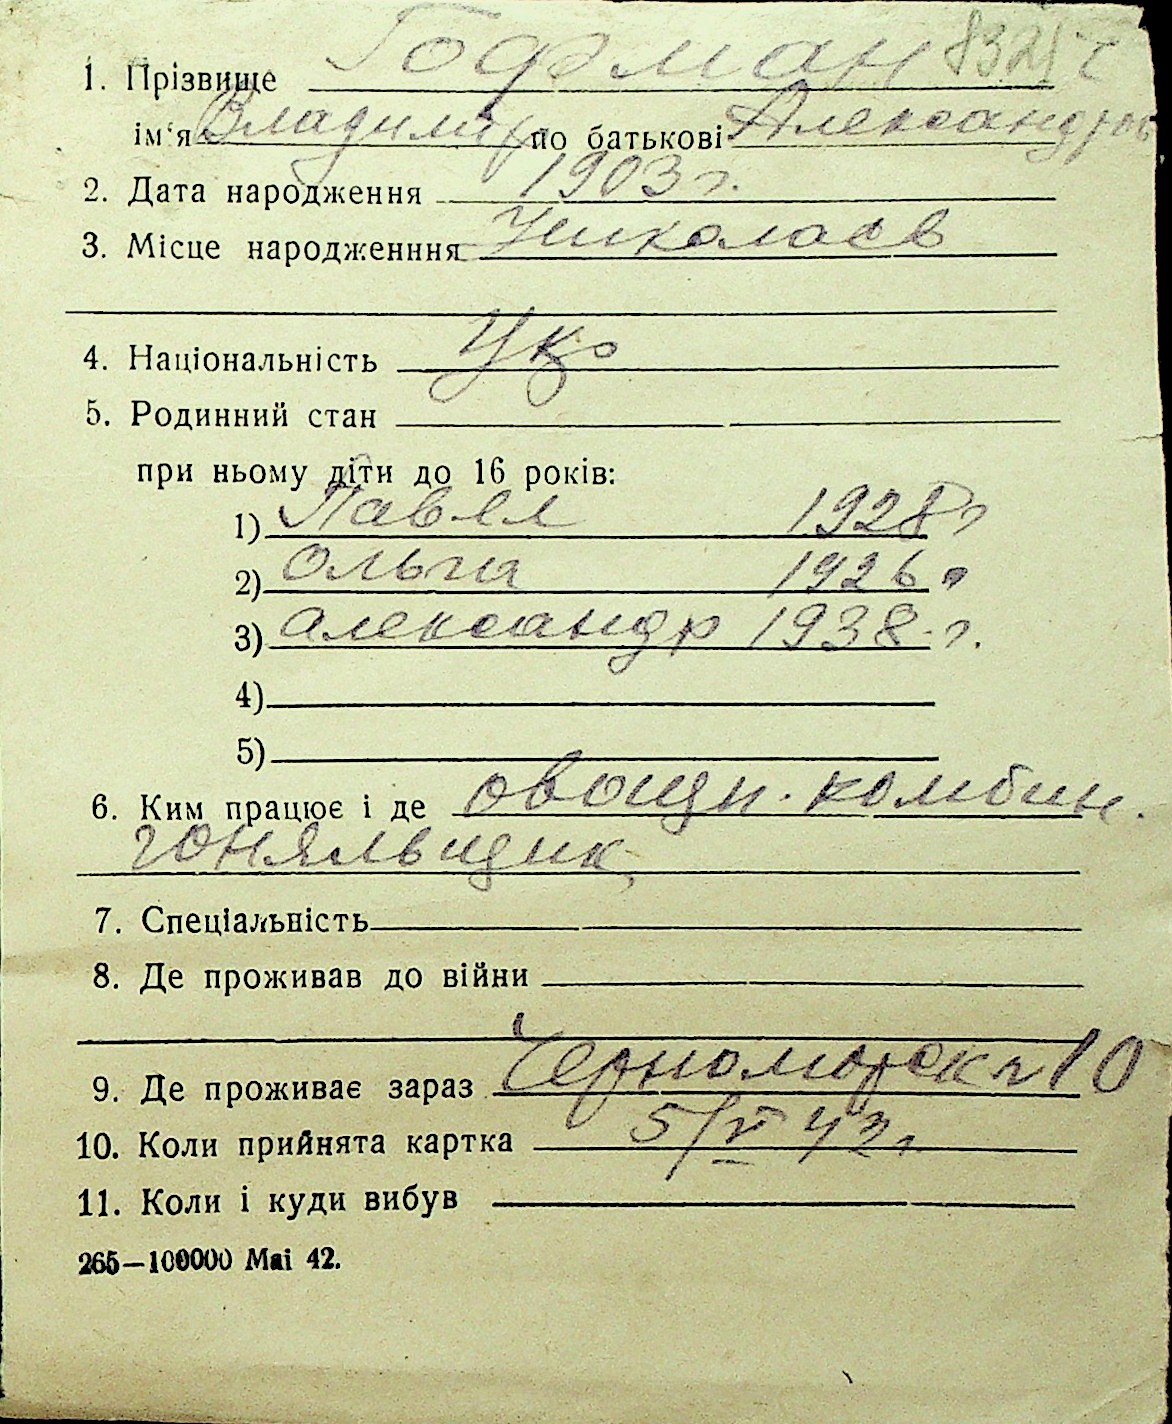 1. Прізвище Гофман
ім'я Владимир по батькові Александров
2. Дата народження 1903 г.
3. Місце народженння Николаев
4. Національність Укр
5. Родинний стан
при ньому діти до 16 років:
1) Павел 1928 г
2) Ольга 1926 г
3) Александр 1938 г.
4)
5)
6. Ким працює і де овощн. комбин.
гоняльщик
7. Спеціальність
8. Де проживав до війни
9. Де проживає зараз Черноморск 10
10. Коли прийнята картка 5/V 43 г.
11. Коли і куди вибув
265—100000 Mai 42.